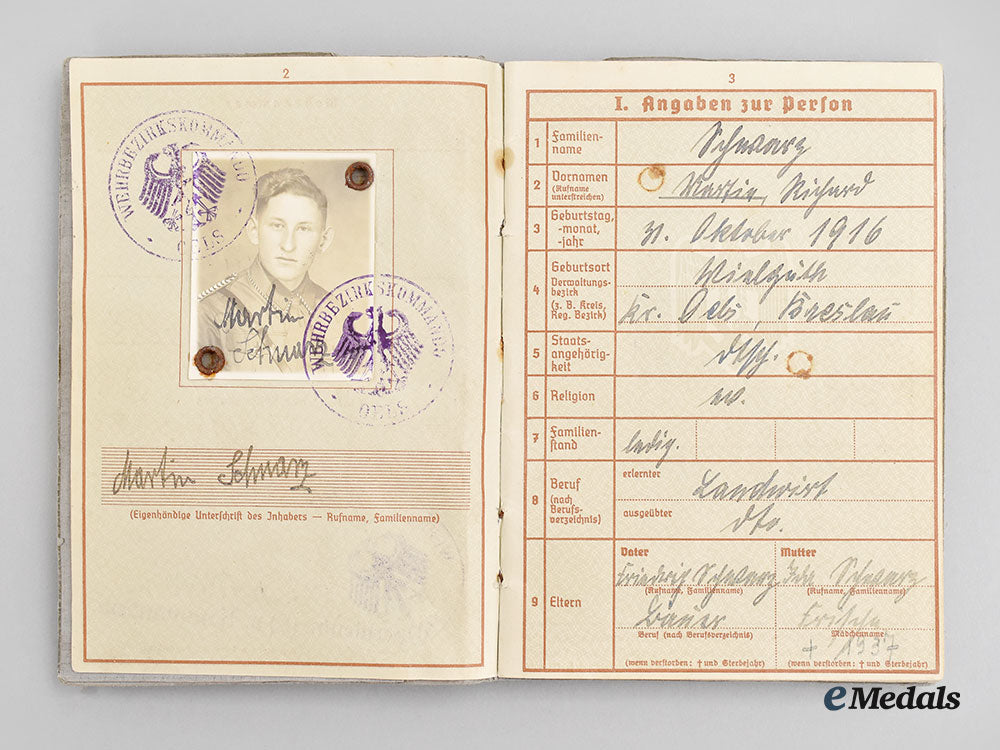 2
WEHRBEZIRKSKOMMANDO
OELS
Martin
Schwarz
WEHRBEZIRKSKOMMANDO
OELS
Martin Schwarz
(Eigenhändige Unterschrift des Inhabers — Rufname, Familienname)
3
I. Angaben zur Person
1 Familien-
name
Schwarz
2 Vornamen
(Rufname
unterstreichen)
Martin, Richard
3 Geburtstag,
-monat,
-jahr
31. Oktober 1916
4 Geburtsort
Verwaltungs-
bezirk
(z. B. Kreis,
Reg. Bezirk)
Wielguth
Kr. Oels, Breslau
5 Staats-
angehörig-
keit
dtsch.
6 Religion
ev.
7 Familien-
stand
ledig.
8 Beruf
(nach
Berufs-
verzeichnis)
erlernter
Landwirt
ausgeübter
dto.
9 Eltern
Vater
Friedrich Schwarz
(Rufname, Familienname)
Bauer
Beruf (nach Berufsverzeichnis)
(wenn verstorben: † und Sterbejahr)
Mutter
Ida Schwarz
(Rufname, Familienname)
Mädchenname
† 1937
(wenn verstorben: † und Sterbejahr)
eMedals